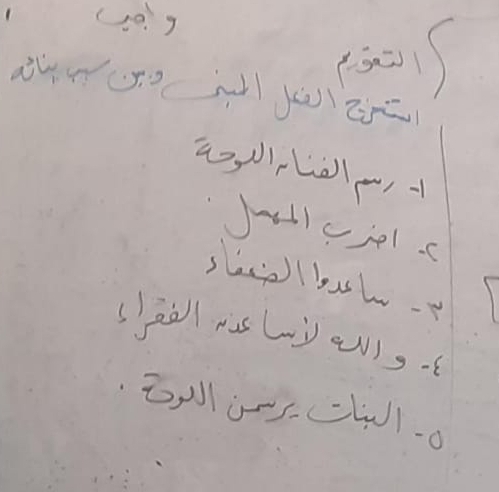 واجب
التقويم
استخرج الفعل المبني وبين سبب بنائه
١- رسم الفنان اللوحة
٢- اضرب المهمل.
٣- ساعدوا الضعفاء
٤- والله لأساعدن الفقراء
٥- البنات يرسمن اللوحة.